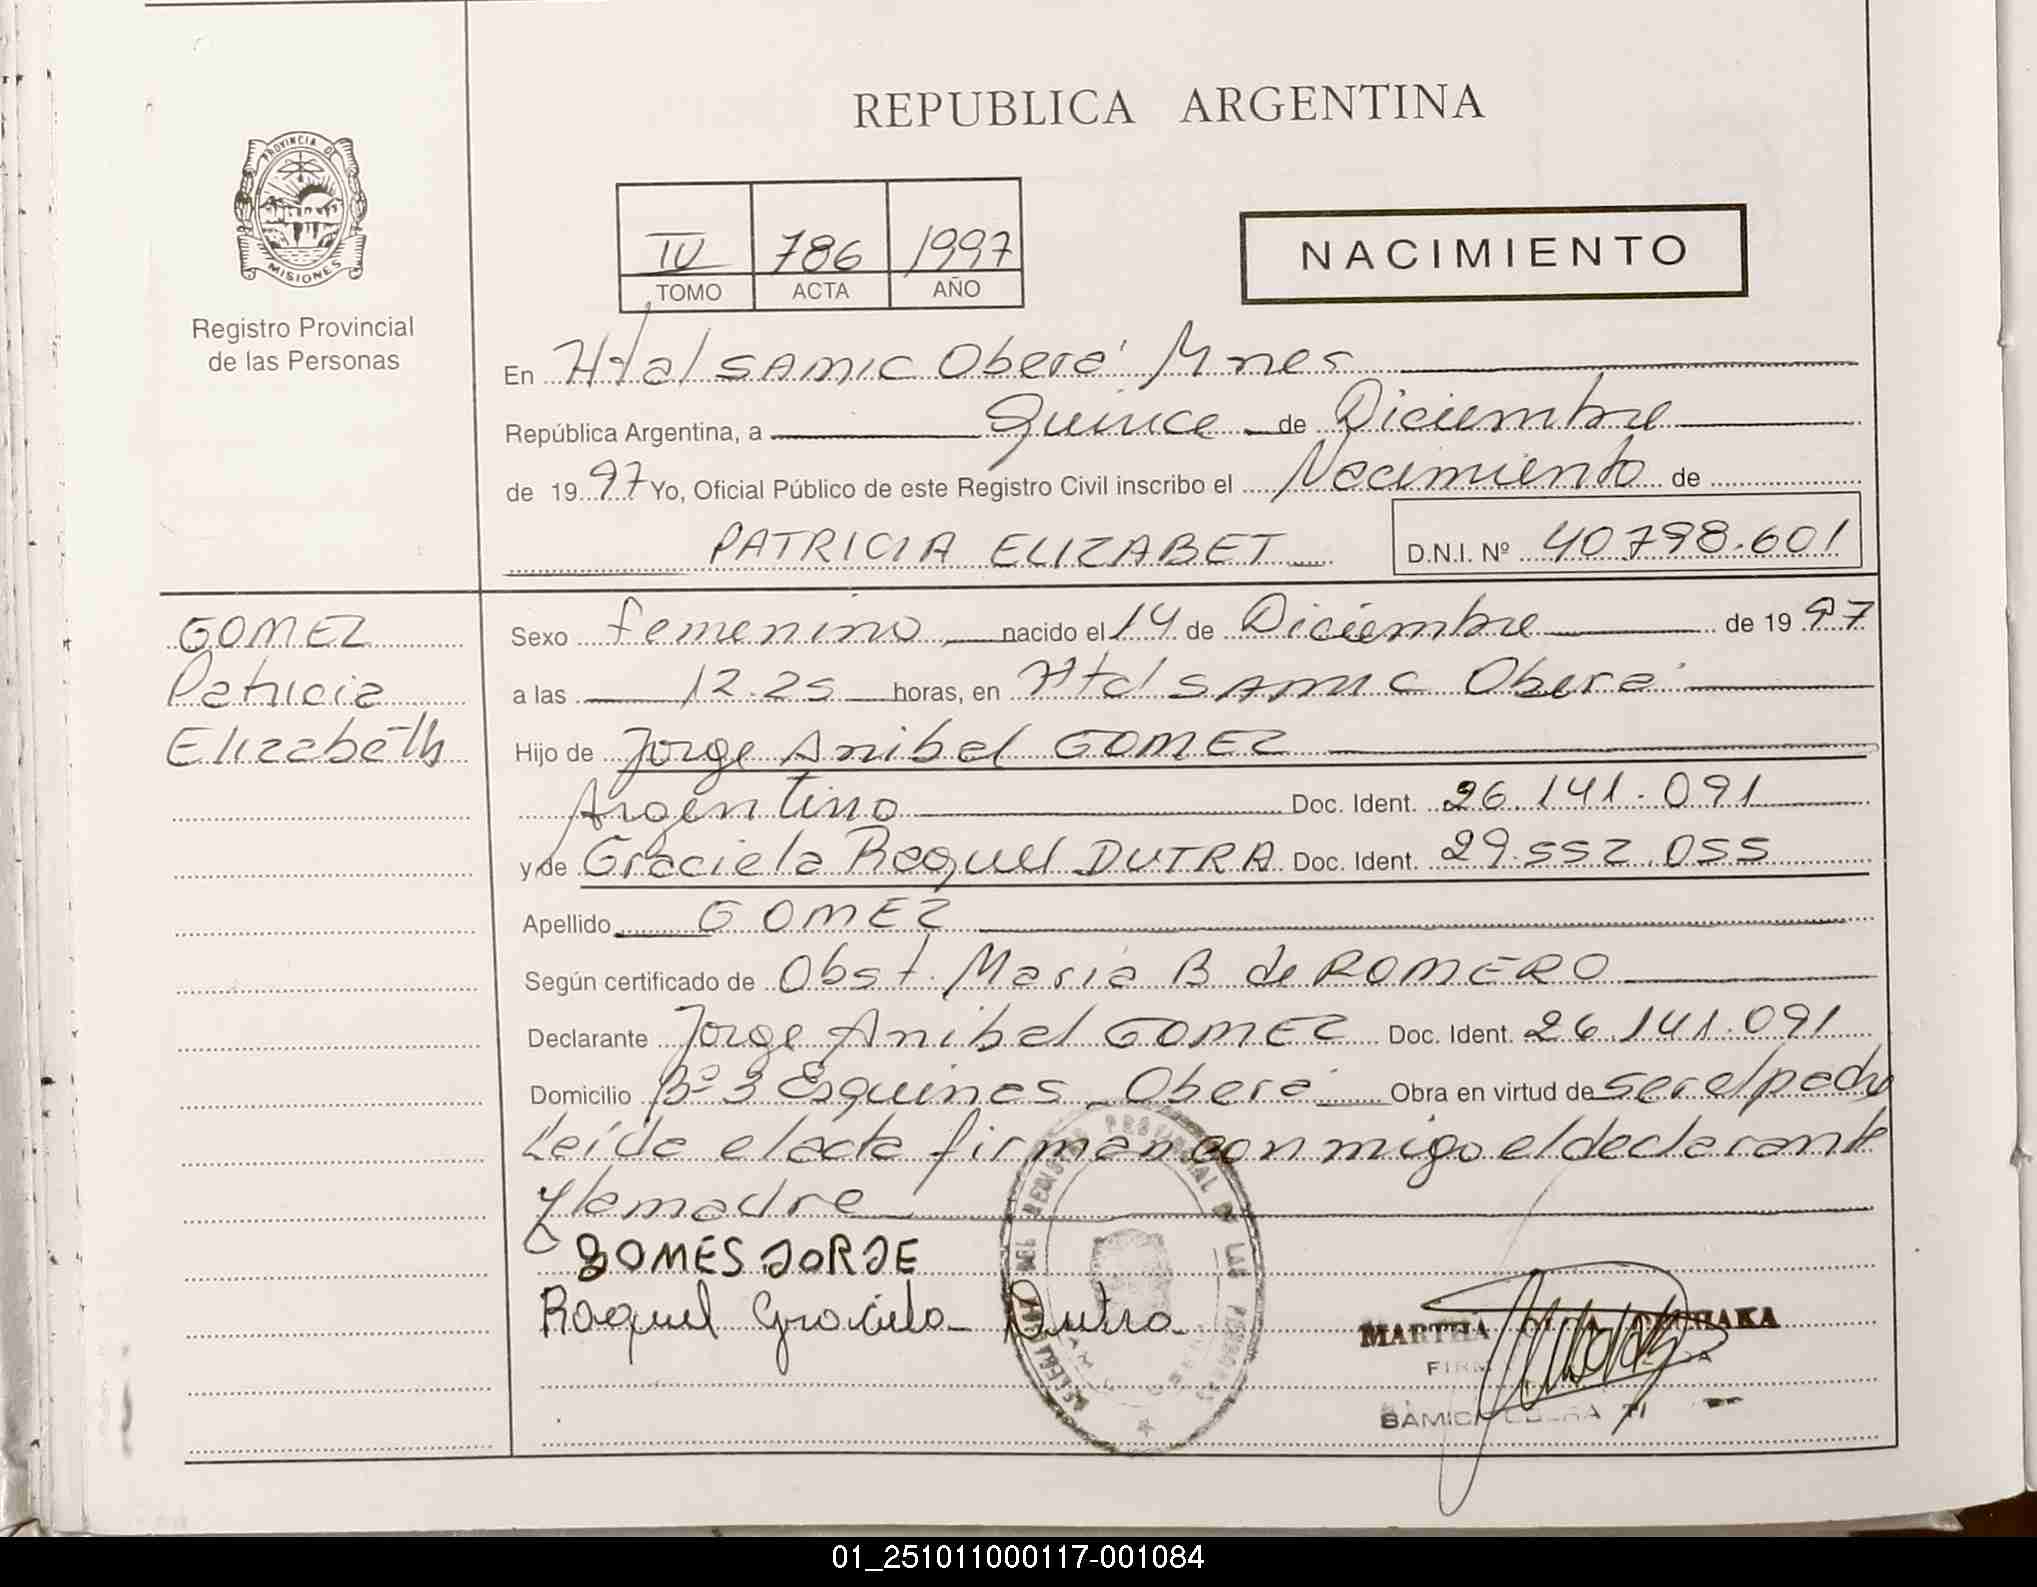 REPUBLICA ARGENTINA
PROVINCIA DE
MISIONES
Registro Provincial
de las Personas
IV 786 1997
TOMO ACTA AÑO
NACIMIENTO
En Htal SAMIC Oberá Mnes
República Argentina, a Quince de Diciembre
de 1997 Yo, Oficial Público de este Registro Civil inscribo el Nacimiento de
PATRICIA ELIZABET D.N.I. Nº 40798.601
GOMEZ
Patricia
Elizabeth
Sexo femenino nacido el 14 de Diciembre de 1997
a las 12.25 horas, en Htal SAMIC Oberá
Hijo de Jorge Anibal GOMEZ
Argentino Doc. Ident. 26.141.091
y de Graciela Raquel DUTRA Doc. Ident. 29.552.055
Apellido GOMEZ
Según certificado de Obst. Maria B de ROMERO
Declarante Jorge Anibal GOMEZ Doc. Ident. 26.141.091
Domicilio Bº 3 Esquinas Oberá Obra en virtud de ser el padre
Leída el acta firman conmigo el declarante
y la madre
GOMES JORJE
Raquel Graciela Dutra
REGISTRO PROVINCIAL DE LAS PERSONAS
MARTHA
SAMIC OBERA
01_251011000117-001084